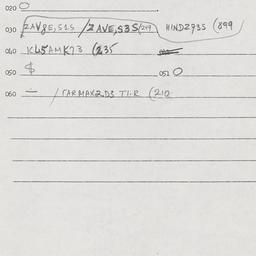 020 O
030 ZAVGE,S1S /ZAVE,S3S/249 HINDZ93S (899
040 KLUSAMK73 (235
050 $ 051 O
060 — / TARMAX2D3 T1-R (210